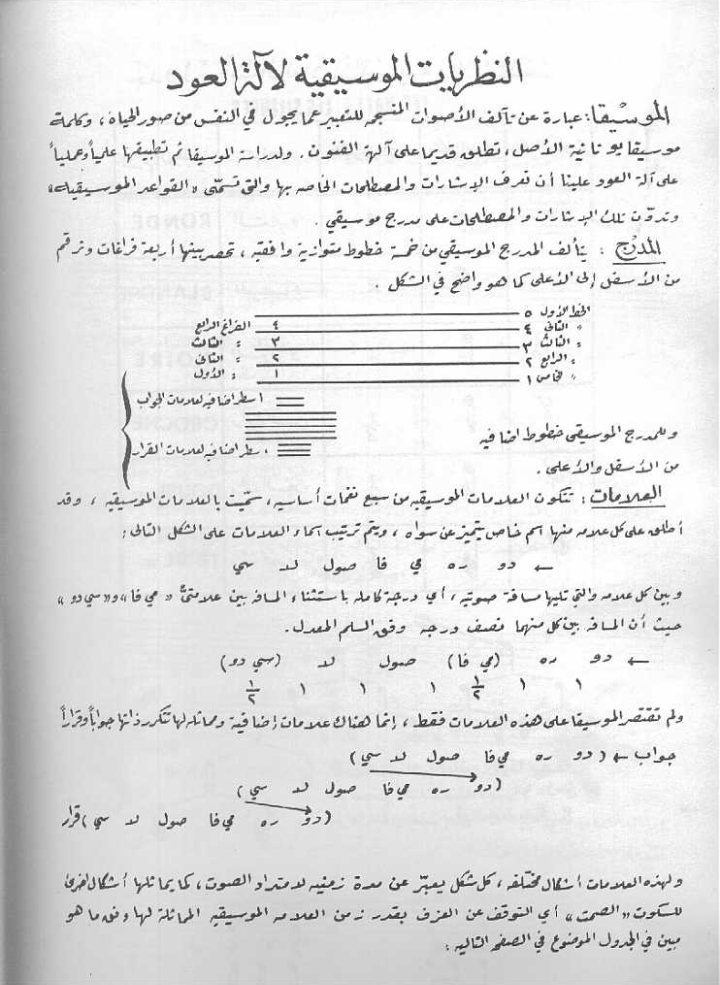 النظريات الموسيقية لآلة العود
الموسيقا: عبارة عن تآلف الأصوات المنسجمه للتعبير عما يجول في النفس من صور الحياة، وكلمة
موسيقا يونانية الأصل، تطلق قديما على آلهة الفنون. ولدراسة الموسيقا ثم تطبيقها علمياً وعملياً
على آلة العود علينا أن نعرف الإشارات والمصطلحات الخاصه بها والتي تسمّى «القواعد الموسيقيه»
وتدوّن تلك الإشارات والمصطلحات على مدرج موسيقي.
المدرج: يتألف المدرج الموسيقي من خمسة خطوط متوازية وافقيه، تحصر بينها أربعة فراغات وترقم
من الأسفل إلى الأعلى كما هو واضح في الشكل.
الخط الأول ٥
" الثاني ٤ ٤ الفراغ الرابع
" الثالث ٣ ٣ " الثالث
" الرابع ٢ ٢ " الثاني
" الخامس ١ ١ " الأول
اسطر اضافيه لعلامات الجواب
وللمدرج الموسيقي خطوط اضافيه
اسطر اضافيه لعلامات القرار
من الأسفل والأعلى.
العلامات: تتكون العلامات الموسيقيه من سبع نغمات أساسيه، سمّيت بالعلامات الموسيقيه، وقد
اطلق على كل علامه منها اسم خاص يتميز عن سواه، ويتم ترتيب اسماء العلامات على الشكل التالي:
← دو ره مي فا صول لا سي
وبين كل علامه والتي تليها مسافة صوتيه، أي درجة كامله باستثناء المسافه بين علامتيّ «مي فا» و«سي دو»
حيث أن المسافه بين كل منهما نصف درجه وفق السلم المعدل.
← دو ره (مي فا) صول لا (سي دو)
١ ١ ١/٢ ١ ١ ١ ١/٢
ولم تقتصر الموسيقا على هذه العلامات فقط، إنما هناك علامات إضافية ومماثله لها تتكرر ذاتها جواباً وقراراً
جواب ← (دو ره مي فا صول لا سي)
(دو ره مي فا صول لا سي)
(دو ره مي فا صول لا سي) قرار
ولهذه العلامات أشكال مختلفه، كل شكل يعبّر عن مدة زمنيه لامتداد الصوت، كما يماثلها أشكال اخرى
للسكوت «الصمت» أي التوقف عن العزف بقدر زمن العلامه الموسيقيه المماثلة لها وفق ما هو
مبين في الجدول الموضوع في الصفحه التاليه: